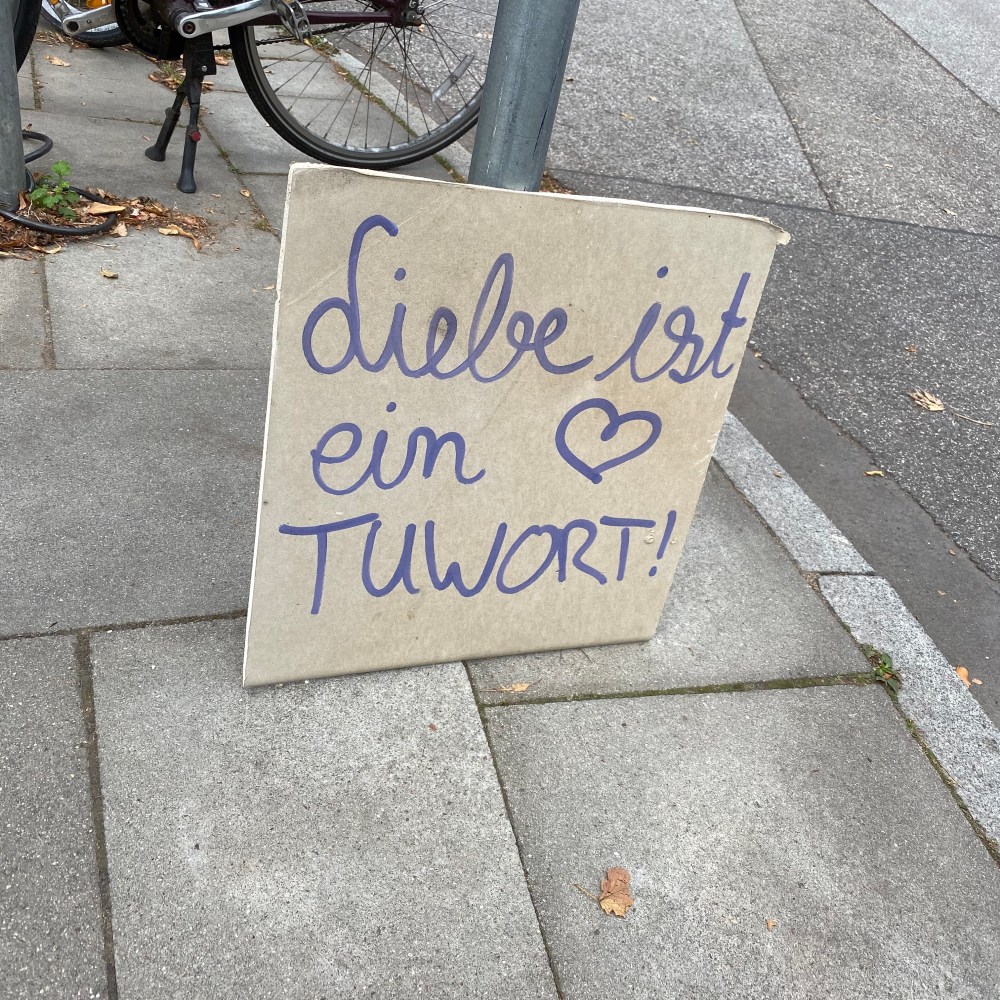 Liebe ist
ein ♡
TUWORT!